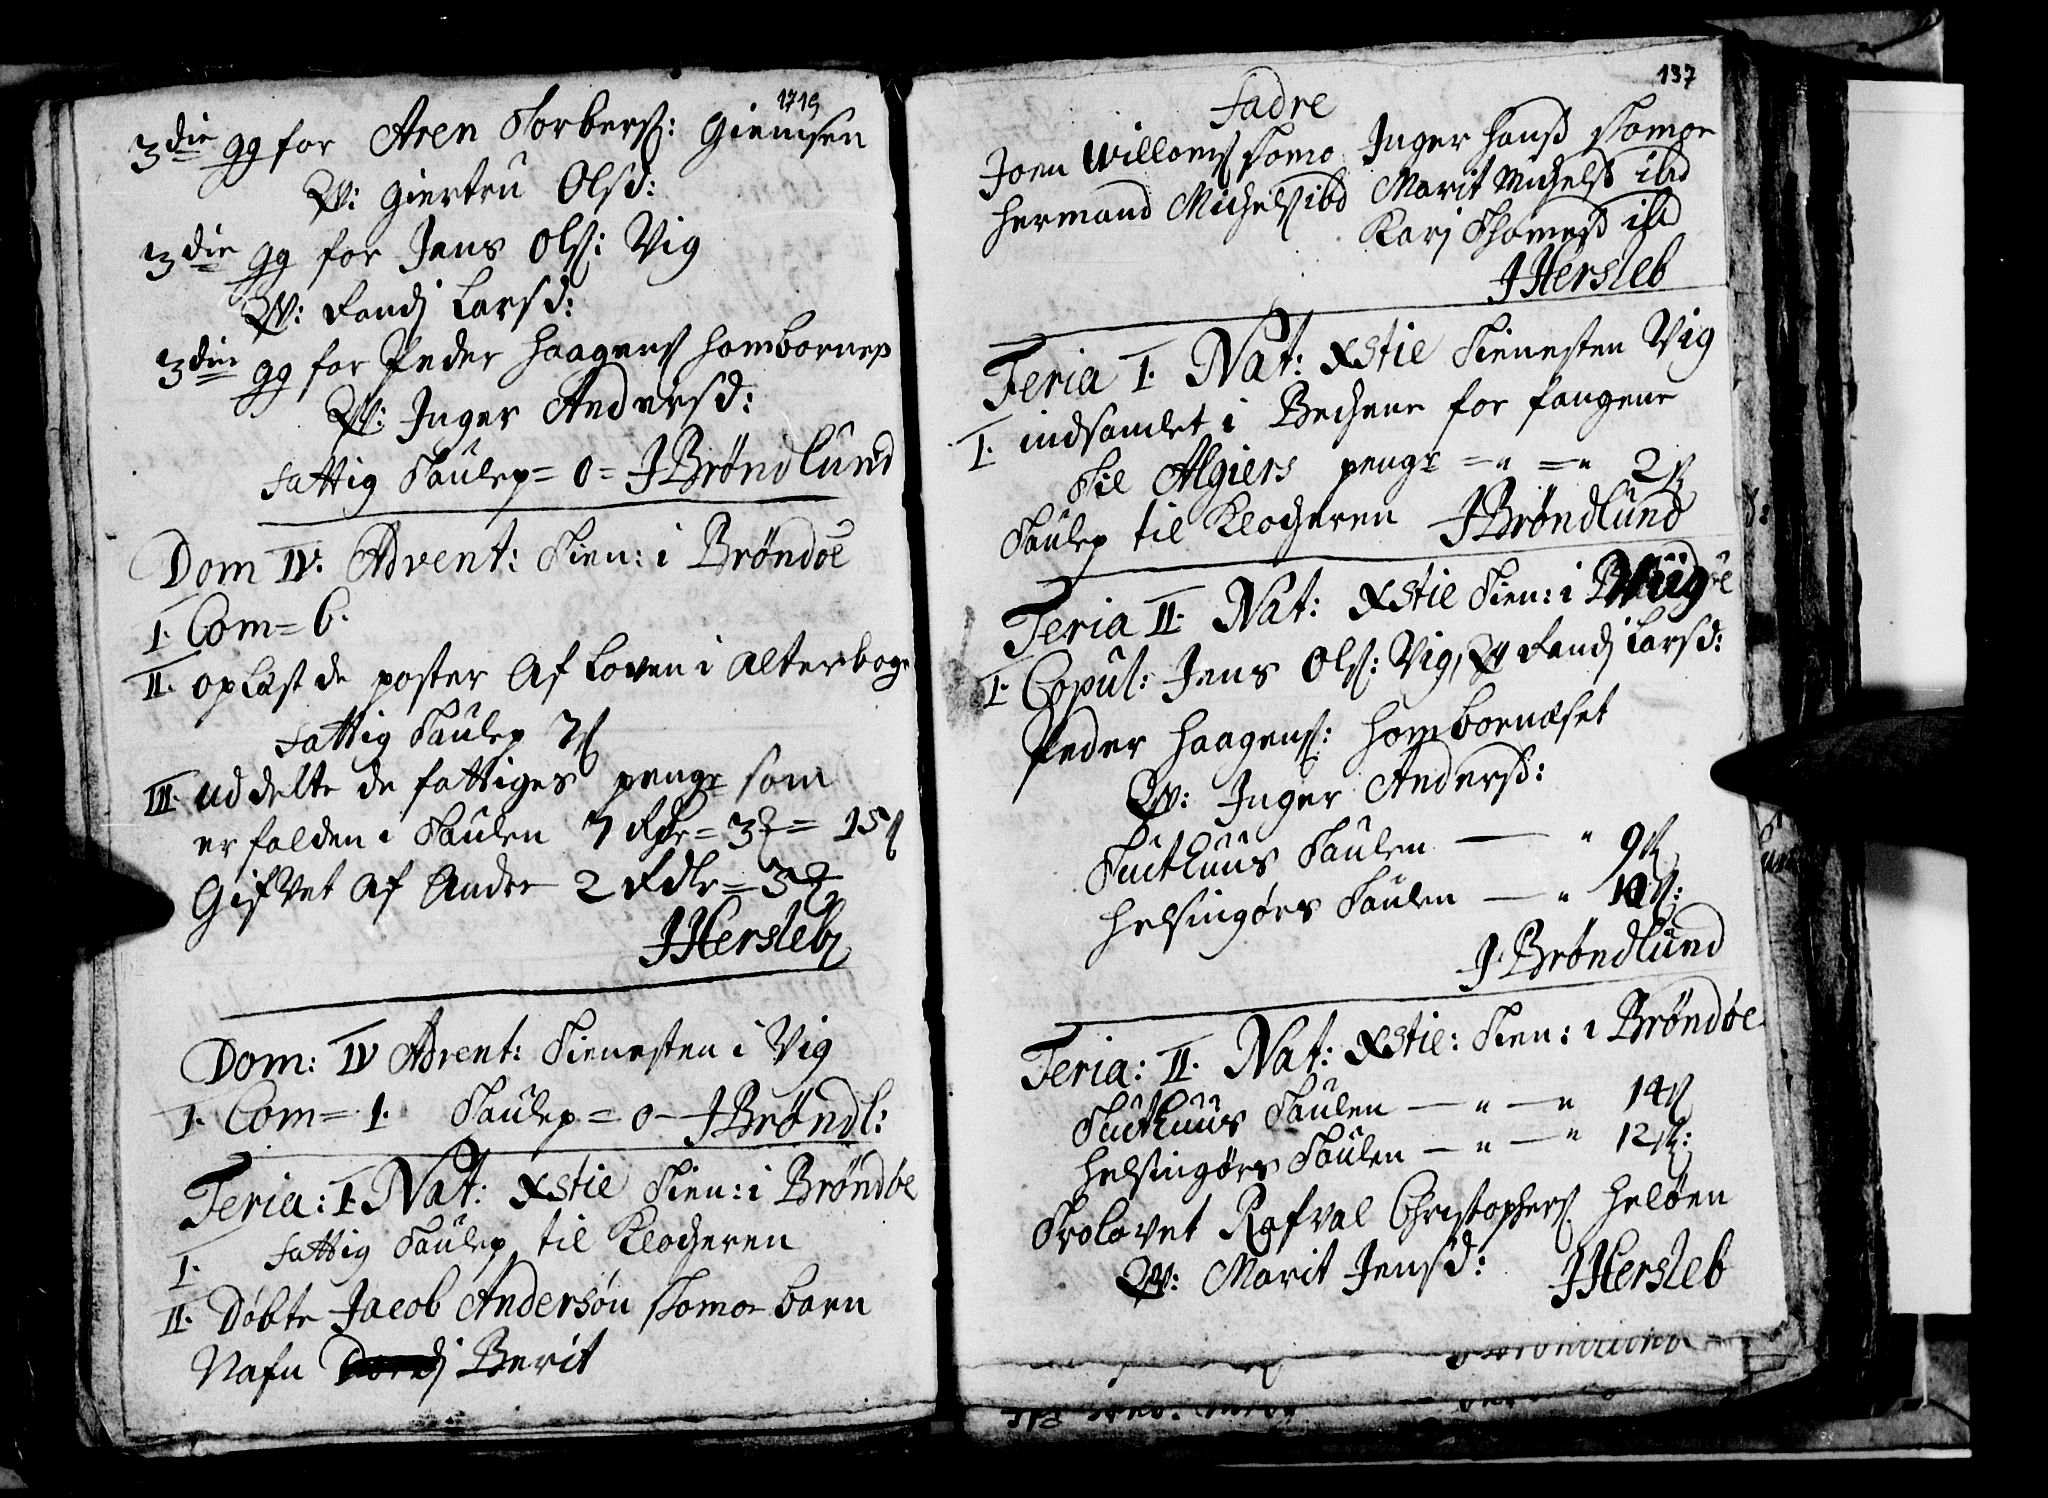 1719
3die gg for Aren Torbers: Giemsen
Qv: Giertru Olsd:
3die gg for Jens Ols: Vig
Qv: Randj Larsd:
3die gg for Peder Haagens Hombornes
Qv: Inger Andersd:
Fattig Taulep = 0 = JBrøndlund
Dom IV. Advent: Tien: i Brøndøe
I. Com = 6.
II. oplæst de poster af Loven i Alterboge
Fattig Taulep 7s
III. uddelte de fattiges penge som
er falden i Taulen 7 Rdr = 3 = 15s
Gifvet af Andre 2 Rdlr = 3
JHersleb
Dom: IV Advent: Tienesten i Vig
I. Com = 1. Taulep = 0 – JBrøndl:
Feria: I. Nat: Xstie Tien: i Brøndøe
I. Fattig Taulep til Klocheren
II. Døbte Jacob Andersøn Tomoe barn
Nafn Berit
137
Fadre
Joen Willoms Tomo Inger Hansd Tomoe
Hermand Michels ibd Marit Michelsd ibd
Karj Thomesd ibd
JHersleb
Feria I. Nat: Xstie Tienesten Vig
I. indsamlet i Bechene for fangene
til Algiers penge = " = " 2s
Taulep til Klocheren JBrøndlund
Feria II. Nat: Xstie Tien: i Viig
I. Copul: Jens Ols: Vig, Qv Randj Larsd:
Peder Haagens: Hombornæset
Qv: Inger Andersd:
Tucthuus Taulen — " 9s
Helsingørs Taulen — " 10s:
J. Brøndlund
Feria: II. Nat: Xstie: Tien: i Brøndøe
Tucthuus Taulen — " — " 14s
Helsingørs Taulen — " — " 12s:
Trolovet Rafval Christophers Heløen
Qv: Marit Jensd: JHersleb